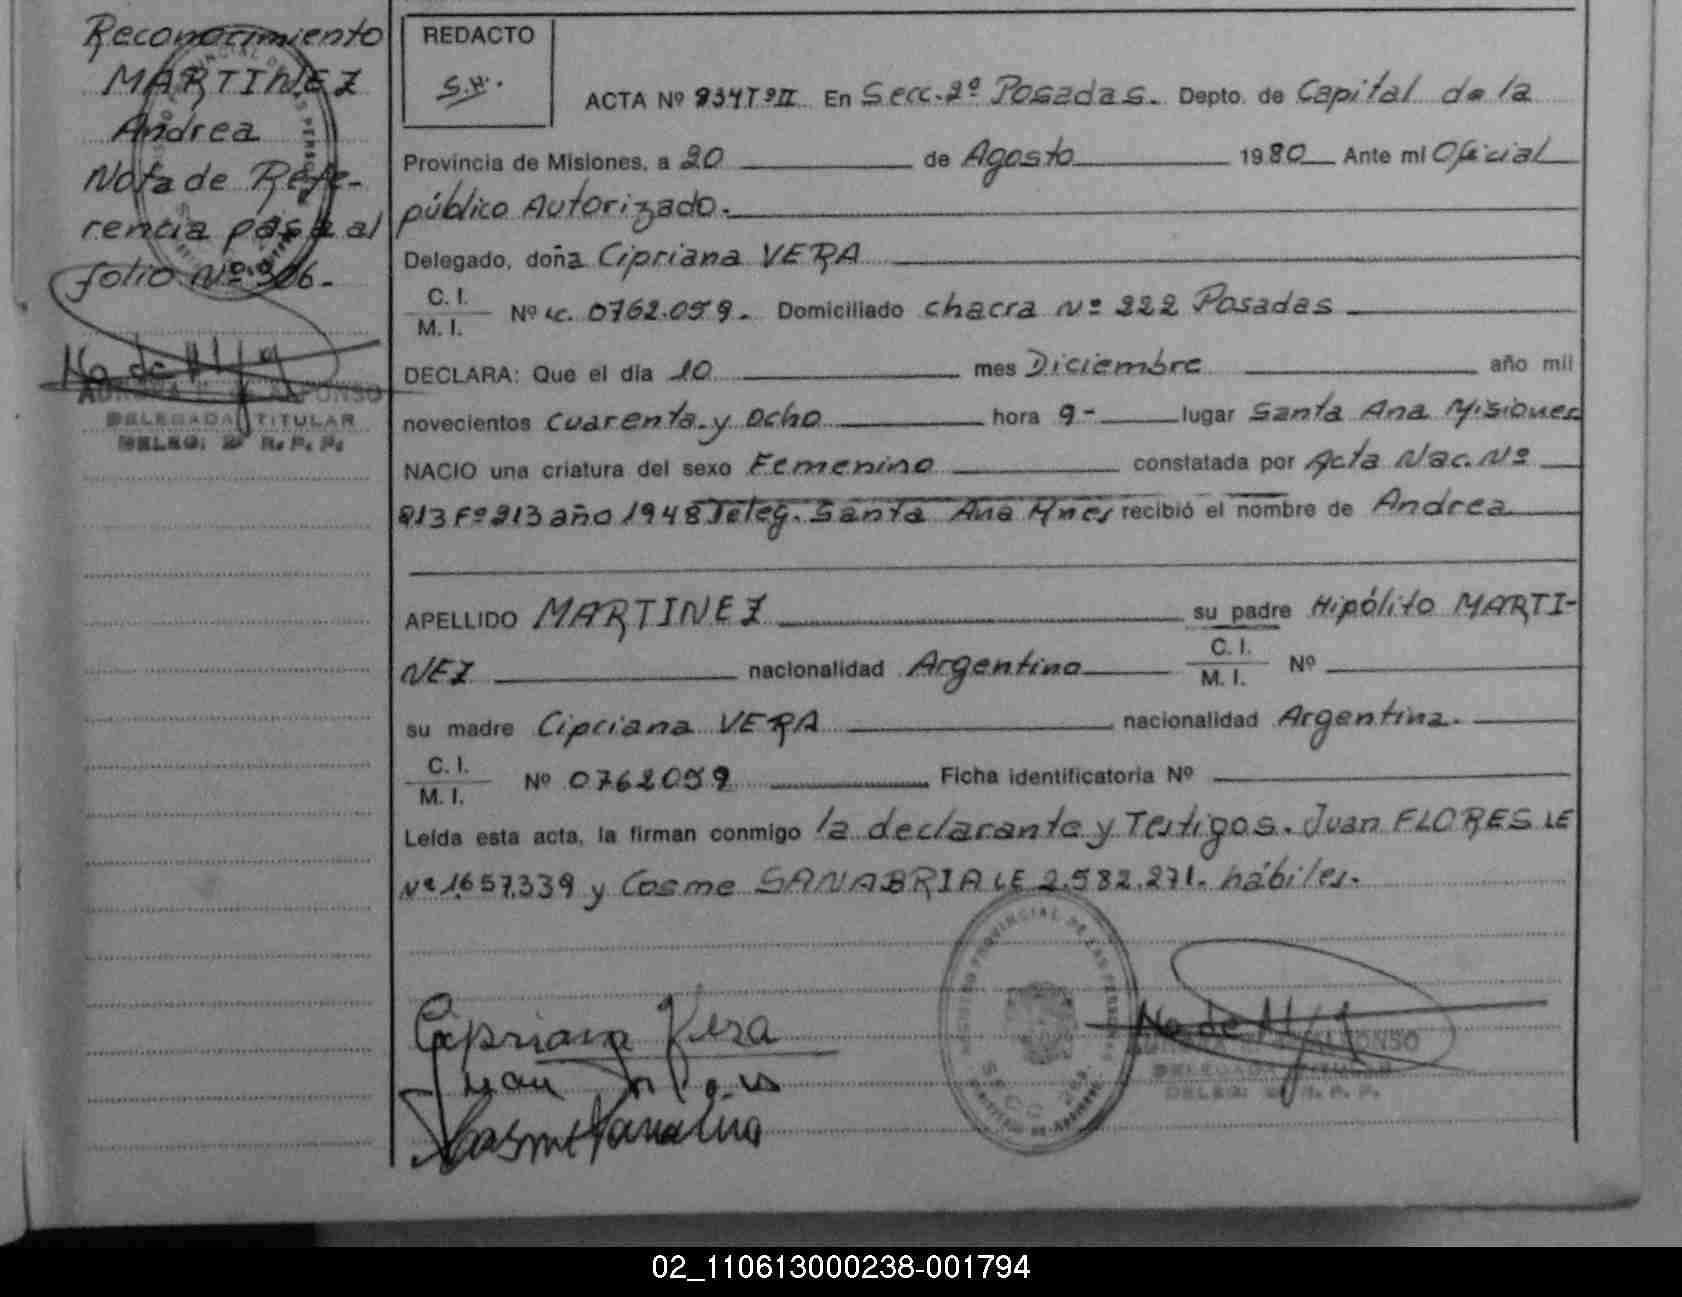 Reconocimiento
MARTINEZ
Andrea
Nota de Refe-
rencia pasa al
folio Nº 306.
DELEGADA TITULAR
DELEG: 2ª R. P. P.
REDACTO
S.H.
ACTA Nº 934TºII En Secc. 2º Posadas. Depto. de Capital de la
Provincia de Misiones, a 20 de Agosto 1980 Ante mi Oficial
público Autorizado.
Delegado, doña Cipriana VERA
C. I.
M. I. Nº LC. 0762.059. Domiciliado chacra Nº 222 Posadas
DECLARA: Que el día 10 mes Diciembre año mil
novecientos cuarenta y ocho hora 9- lugar Santa Ana Misiones
NACIO una criatura del sexo Femenino constatada por Acta Nac. Nº
213 Fº 213 año 1948 Teleg. Santa Ana Mnes recibió el nombre de Andrea
APELLIDO MARTINEZ su padre Hipólito MARTI-
NEZ nacionalidad Argentino C. I.
M. I. Nº
su madre Cipriana VERA nacionalidad Argentina.
C. I.
M. I. Nº 0762059 Ficha identificatoria Nº
Leída esta acta, la firman conmigo la declarante y Testigos. Juan FLORES LE
Nº 1.657.339 y Cosme SANABRIA LE 2.582.271. hábiles.
Cipriana Vera
DELEGADA TITULAR
DELEG: 2ª R. P. P.
02_110613000238-001794